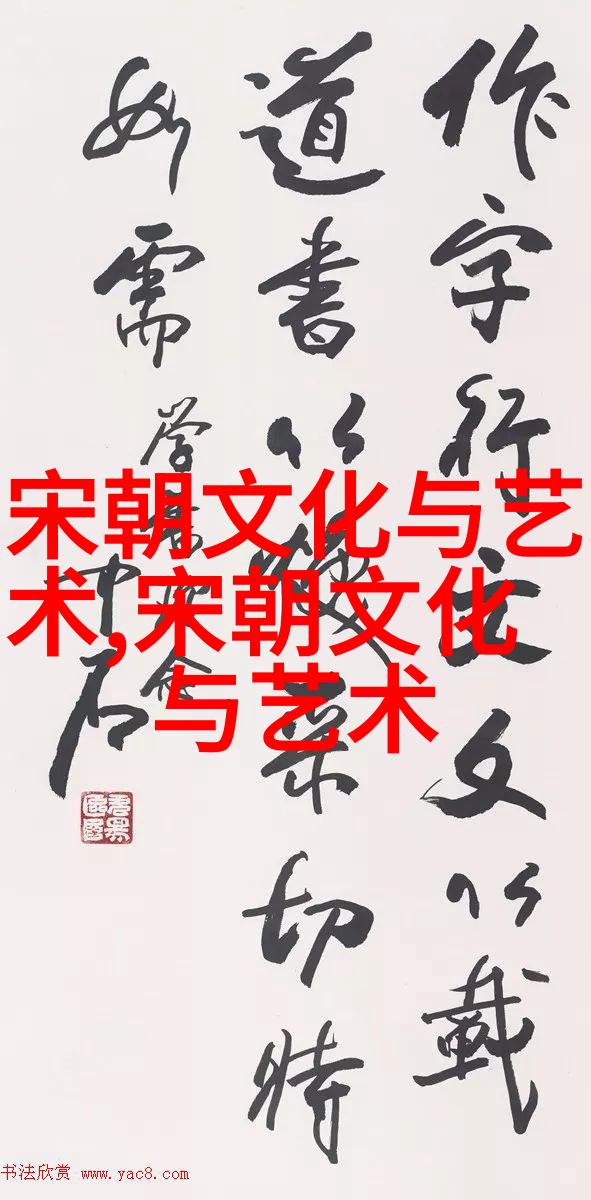 作字行文文以載
道書以煥采切時
如需
中石
宋朝文化与艺
术,宋朝文化
与艺术
书法欣赏 www.yac8.com